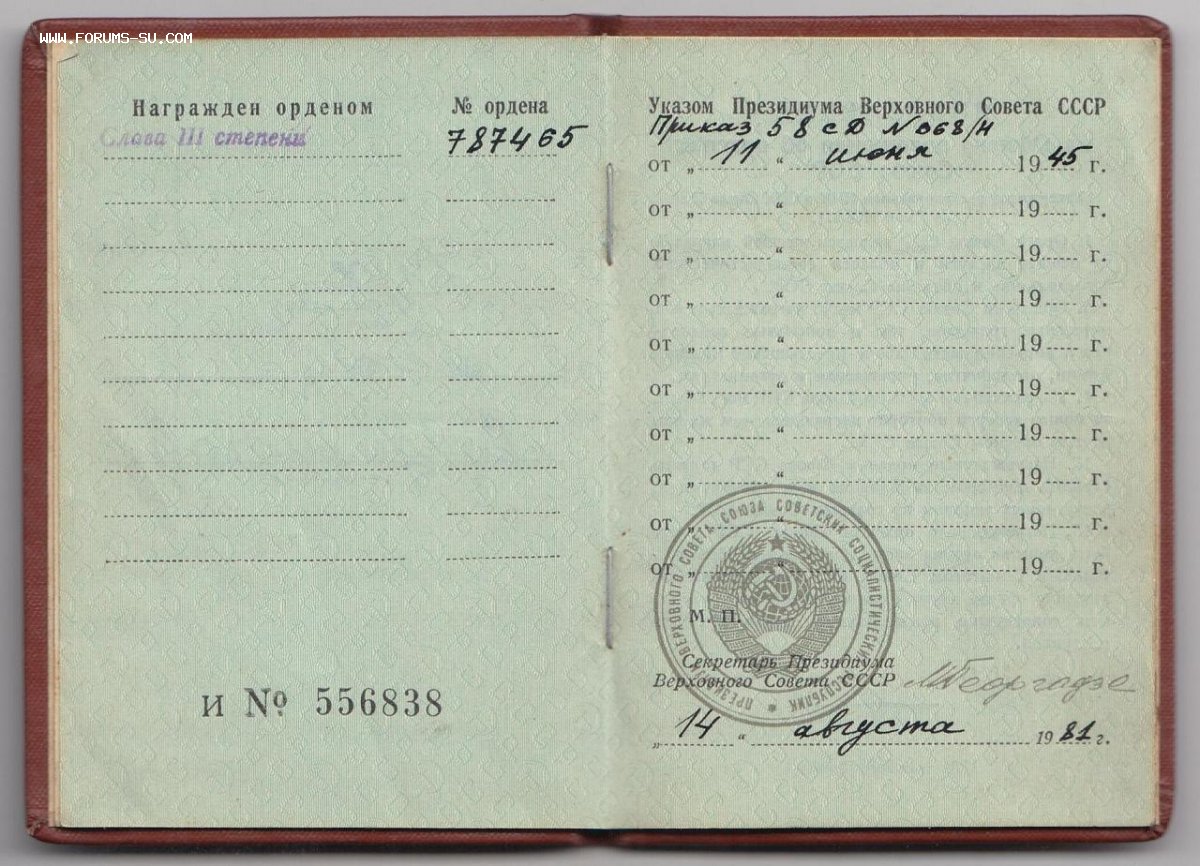 www.FORUMS-SU.COM
Награжден орденом
№ ордена
Слава III степени
787465
И № 556838
Указом Президиума Верховного Совета СССР
Приказ 58 сд № 068/н
от „ 11 “ июня 1945 г.
от „ “ 19 г.
от „ “ 19 г.
от „ “ 19 г.
от „ “ 19 г.
от „ “ 19 г.
от „ “ 19 г.
от „ “ 19 г.
от „ “ 19 г.
от „ “ 19 г.
ПРЕЗИДИУМ ВЕРХОВНОГО СОВЕТА СОЮЗА СОВЕТСКИХ СОЦИАЛИСТИЧЕСКИХ РЕСПУБЛИК
М. П.
Секретарь Президиума
Верховного Совета СССР
МГеоргадзе
„ 14 “ августа 1981 г.